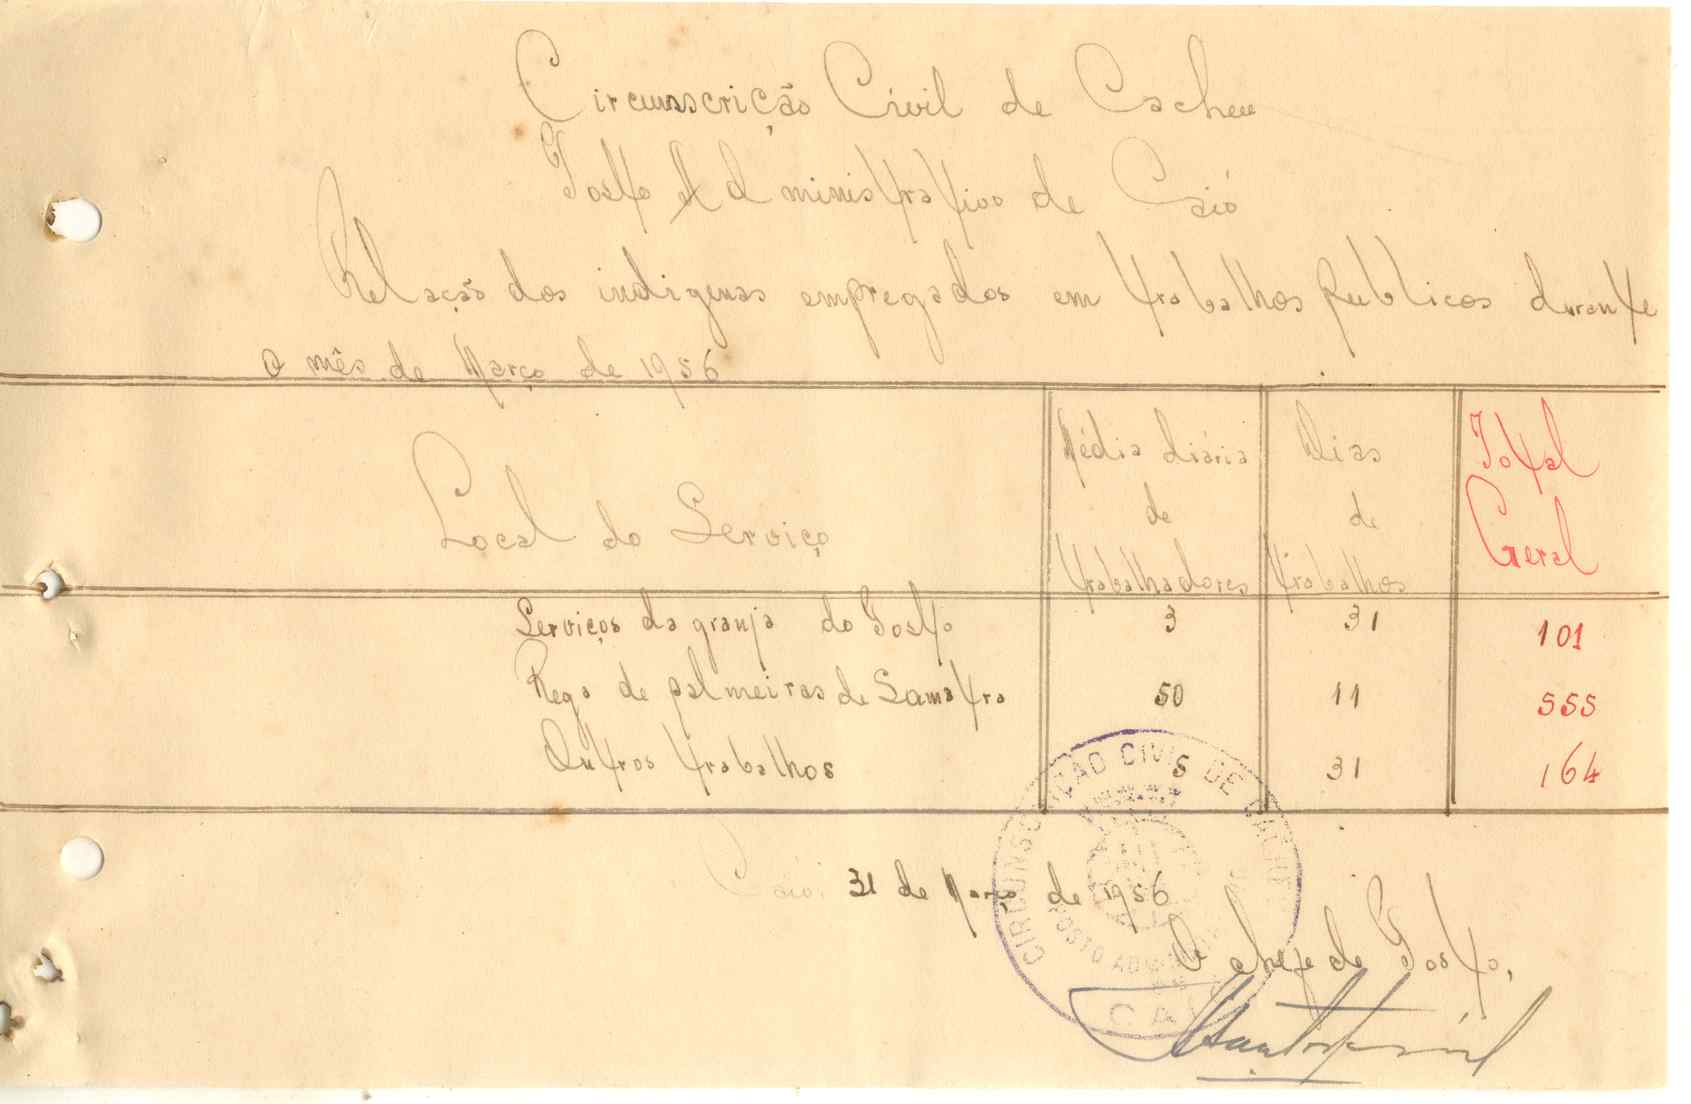 Circunscrição Civil de Cacheu
Posto Administrativo de Caió
Relação dos indigenas empregados em trabalhos publicos durante
o mês de Março de 1956
Local do Serviço
Média diária
de
trabalhadores
Dias
de
trabalhos
Total
Geral
Serviços da granja do Posto 3 31 101
Rega de palmeiras de Samatra 50 11 555
Outros trabalhos 5 31 164
Caió, 31 de Março de 1956
O chefe do Posto,
CIRCUNSCRIÇÃO CIVIL DE CACHEU
POSTO ADMINISTRATIVO
CAIÓ